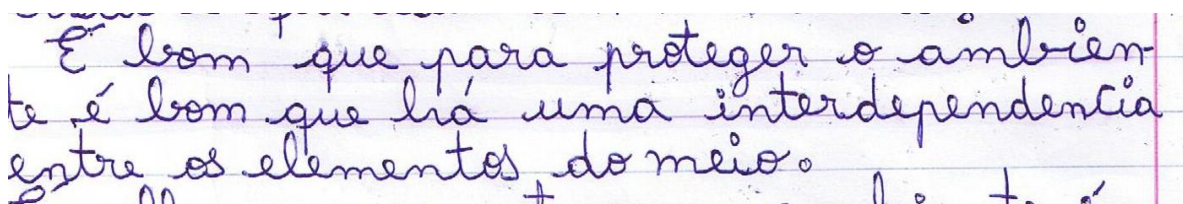 É bom que para proteger o ambien-
te é bom que há uma interdependencia
entre os elementos do meio.